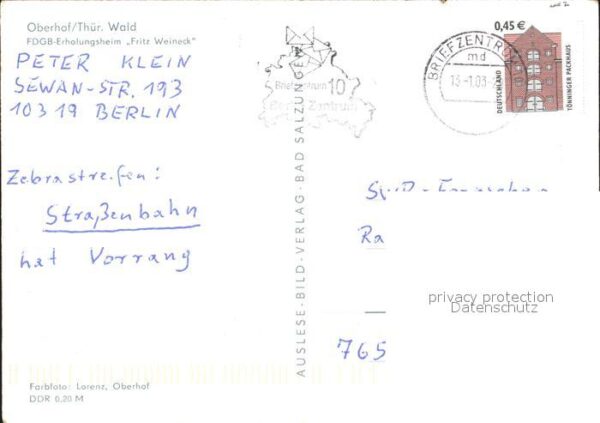 Oberhof/Thür. Wald
FDGB-Erholungsheim „Fritz Weineck"
PETER KLEIN
SEWAN-STR. 193
10319 BERLIN
Zebrastreifen:
Straßenbahn
hat Vorrang
Farbfoto: Lorenz, Oberhof
DDR 0,20 M
AUSLESE-BILD-VERLAG-BAD SALZUNGEN
Briefzentrum 10
Berlin Zentrum
BRIEFZENTRUM 10
md
0,45 €
DEUTSCHLAND
TÖNNINGER PACKHAUS
Ra
765
privacy protection
Datenschutz